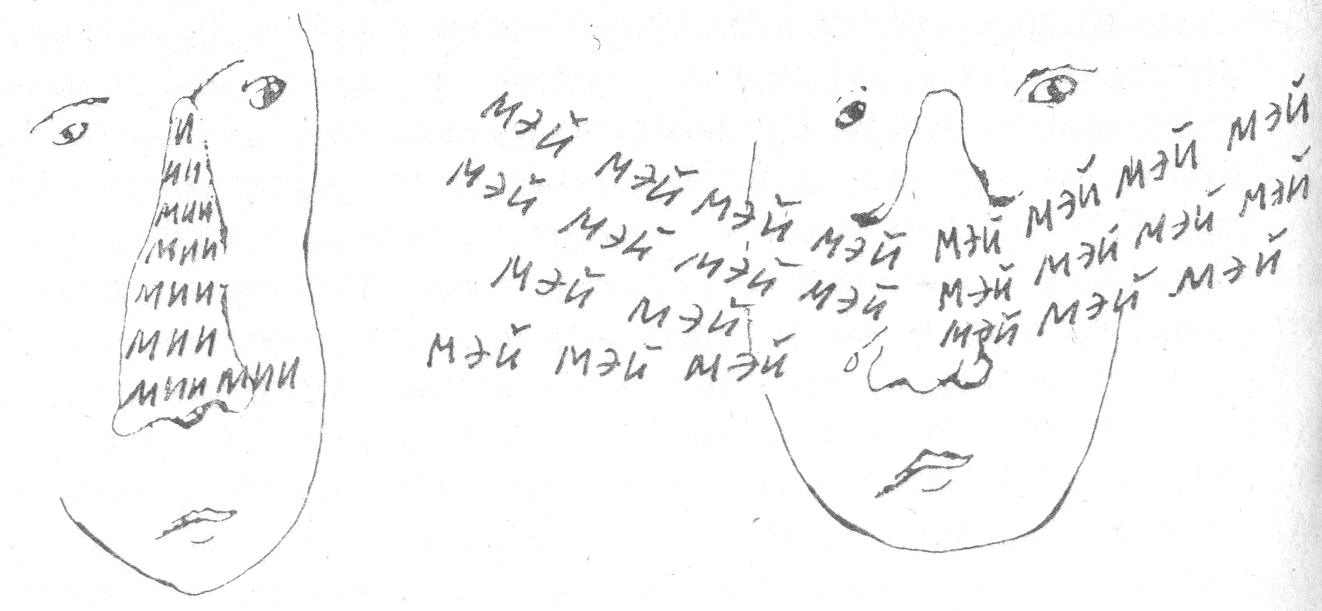 И
ИИ
МИИ
МИИ
МИИ
МИИ
МИИ МИИ
МЭЙ МЭЙ МЭЙ МЭЙ МЭЙ МЭЙ МЭЙ МЭЙ
МЭЙ МЭЙ МЭЙ МЭЙ МЭЙ МЭЙ МЭЙ МЭЙ
МЭЙ МЭЙ МЭЙ МЭЙ МЭЙ
МЭЙ МЭЙ МЭЙ